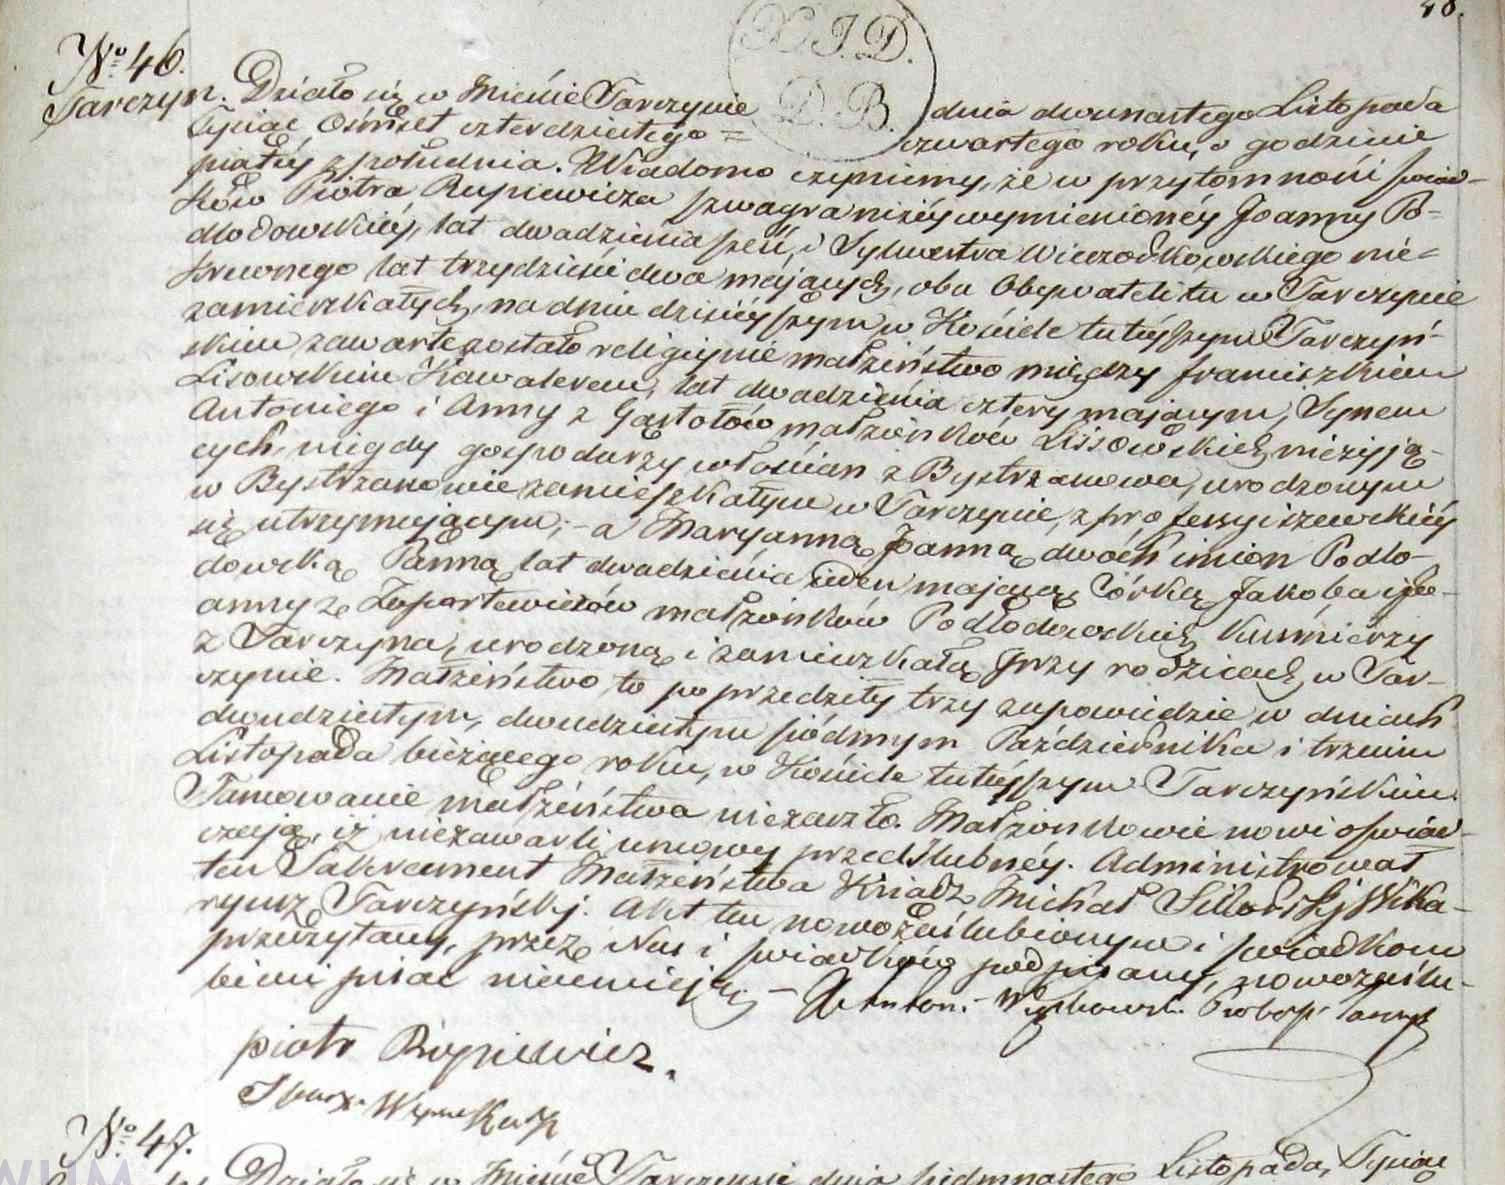 48.
X. J. D.
D. B.
No 46.
Tarczyn. Działo się w Mieście Tarczynie dnia dwunastego Listopada
Tysiąc Ośmset czterdziestego = czwartego roku, o godzinie
piątéy z południa. Wiadomo czyniemy, że w przytomności świad-
ków Piotra Rupiewicza szwagra niżéy wymienionéy Joanny Po-
dłodowskiéy, lat dwadzieścia sześć, i Sylwestra Wieczodkowskiego nie=
krewnego lat trzydzieści dwa maiących, obu Obywateli tu w Tarczynie
zamieszkałych, na dniu dzisiéyszym w Kościele tutéyszym Tarczyń-
skim zawarte zostało religiynie małżeństwo między Franciszkiem
Lisowskim Kawalerem, lat dwadzieścia cztery maiącym, Synem
Antoniego i Anny z Gąstołów małżonków Lissowskich nieżyją-
cych, niegdy gospodarzy włościan z Bystrzanowa, urodzonym
w Bystrzanowie zamieszkałym w Tarczynie, z professyi szewskiéy
się utrzymującym; - a Maryanną Joanną dwóch imion Podło-
dowską Panną lat dwadzieścia ieden maiącą, Córką Jakoba i Jo-
anny z Zapartowiczów małżonków Podłodowskich Kuśmierzy
z Tarczyna, urodzoną i zamieszkałą przy rodzicach w Tar-
czynie. Małżeństwo to poprzedziły trzy zapowiedzie w dniach
dwudziestym, dwudziestym siódmym Października i trzecim
Listopada bieżącego roku, w Kościele tutéyszym Tarczyńskim.
Tamowanie małżeństwa niezaszło. Małżonkowie nowi oświad-
czają, iż niezawarli umowy przedślubnéy. Administrował
ten Sakrament Małżeństwa Xiądz Michał Sikorskj Wika-
ryusz Tarczyńskj. Akt ten nowozaślubionym i świadkom
przeczytany, przez Nas i świadków podpisany, nowozaślu-
bieni pisać nieumieją. - X Anton.
piotr Rópiewicz.
No 47.
Działo się w Mieście Tarczynie dnia siedmnastego Listopada, Tysiąc